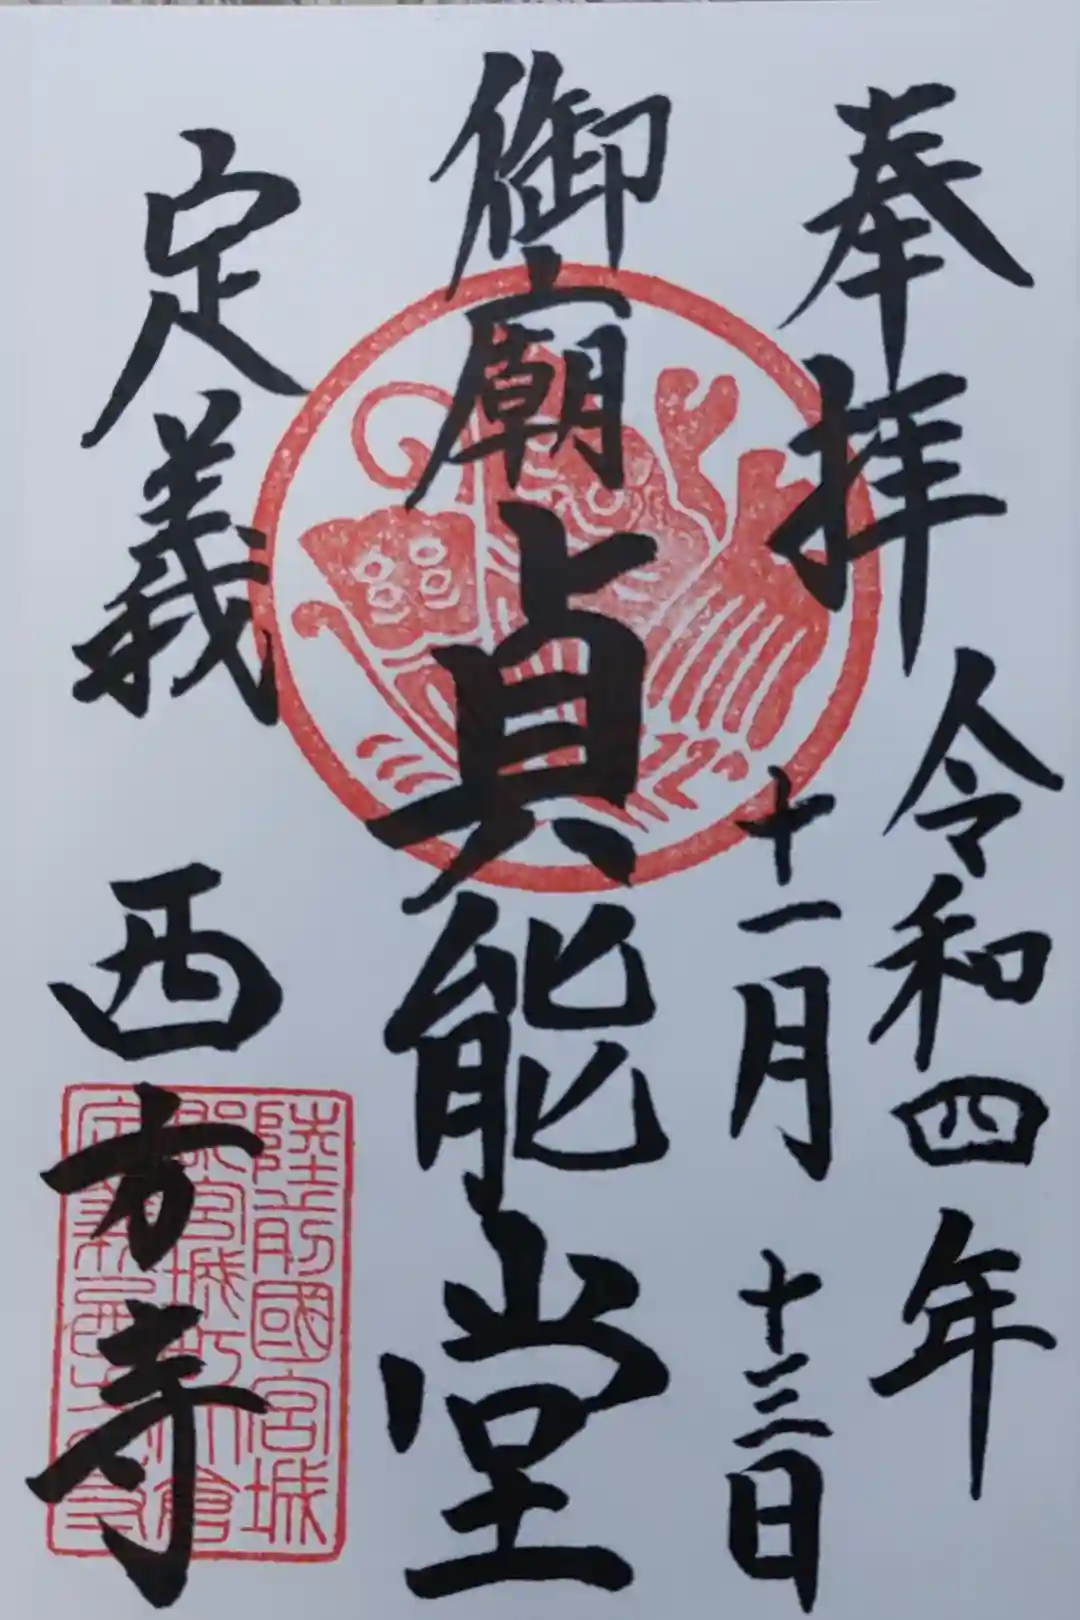 奉拝
令和四年
十一月十三日
御廟貞能堂
定義
西方寺
陸前國宮城
郡宮城町大倉
定義西方寺